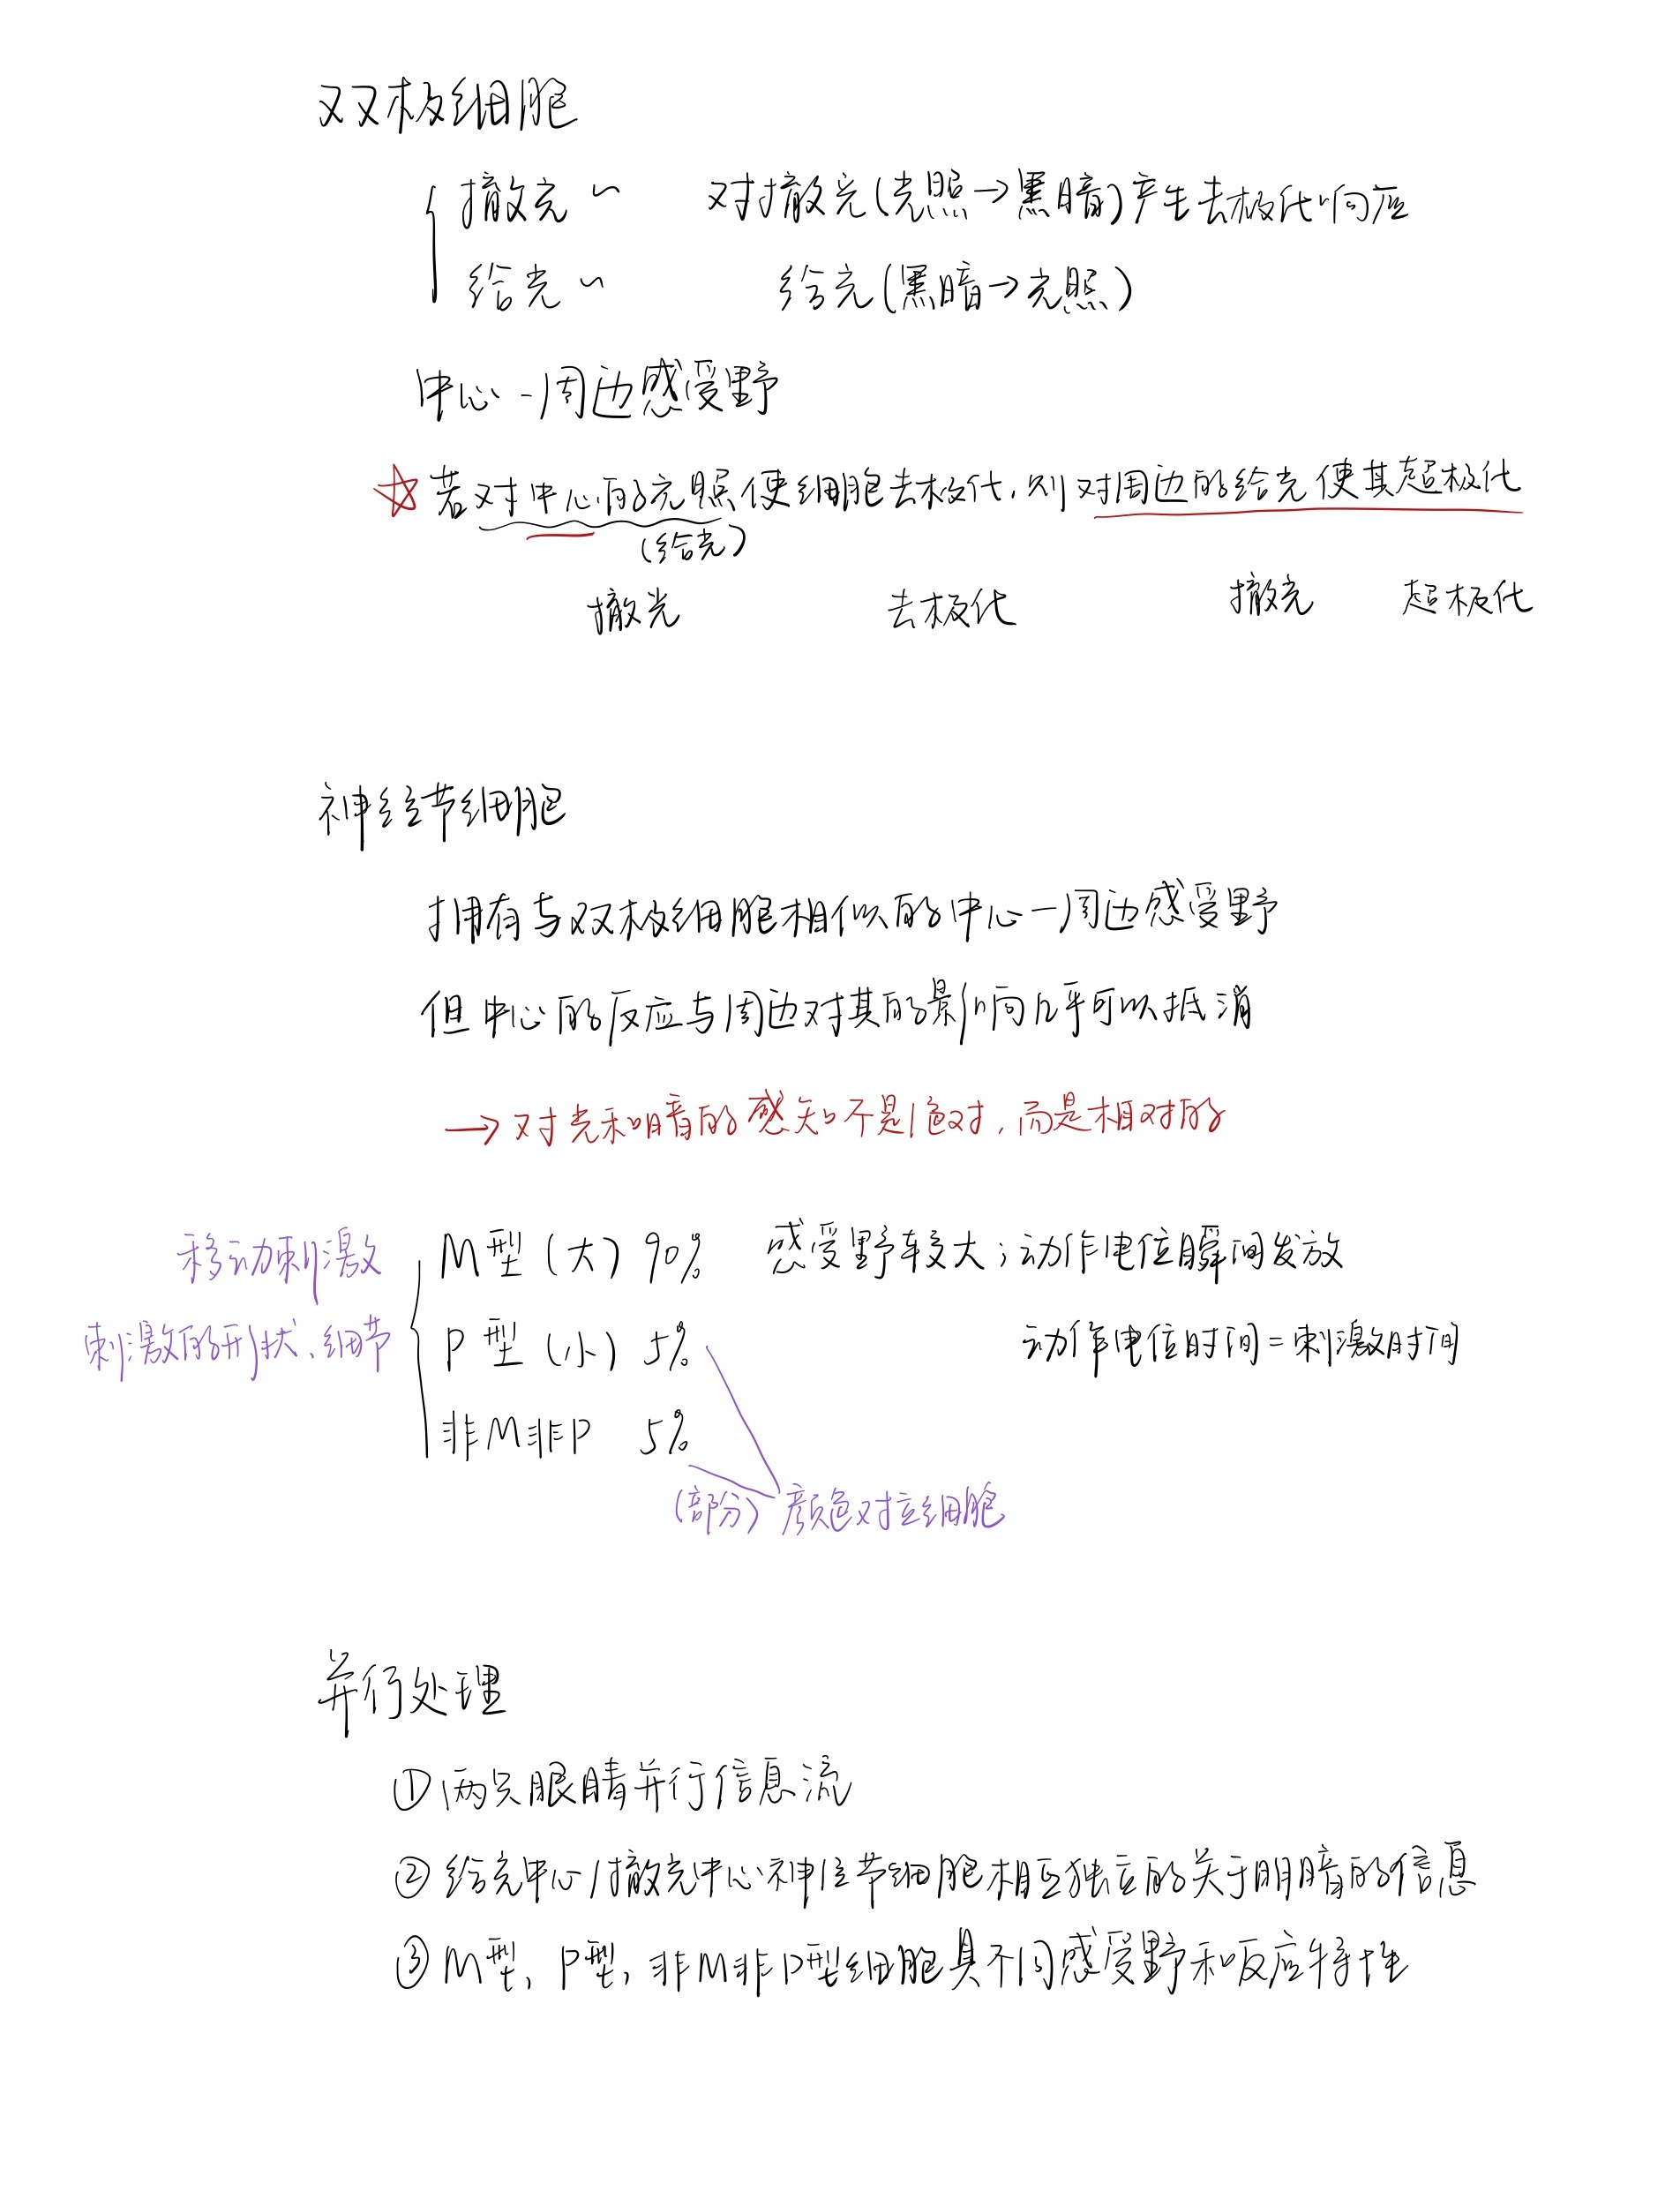 双极细胞
撤光~ 对撤光(光照→黑暗)产生去极化响应
给光~ 给光(黑暗→光照)
中心-周边感受野
☆若对中心的光照使细胞去极化,则对周边的给光使其超极化
(给光)
撤光 去极化 撤光 超极化
神经节细胞
拥有与双极细胞相似的中心-周边感受野
但中心的反应与周边对其的影响几乎可以抵消
→对光和暗的感知不是绝对,而是相对的
移动刺激 M型(大) 90% 感受野较大;动作电位瞬间发放
刺激的形状、细节 P型(小) 5% 动作电位时间=刺激时间
非M非P 5%
(部分)颜色对立细胞
并行处理
①两只眼睛并行信息流
②给光中心/撤光中心神经节细胞相互独立的关于明暗的信息
③M型,P型,非M非P型细胞具不同感受野和反应特性